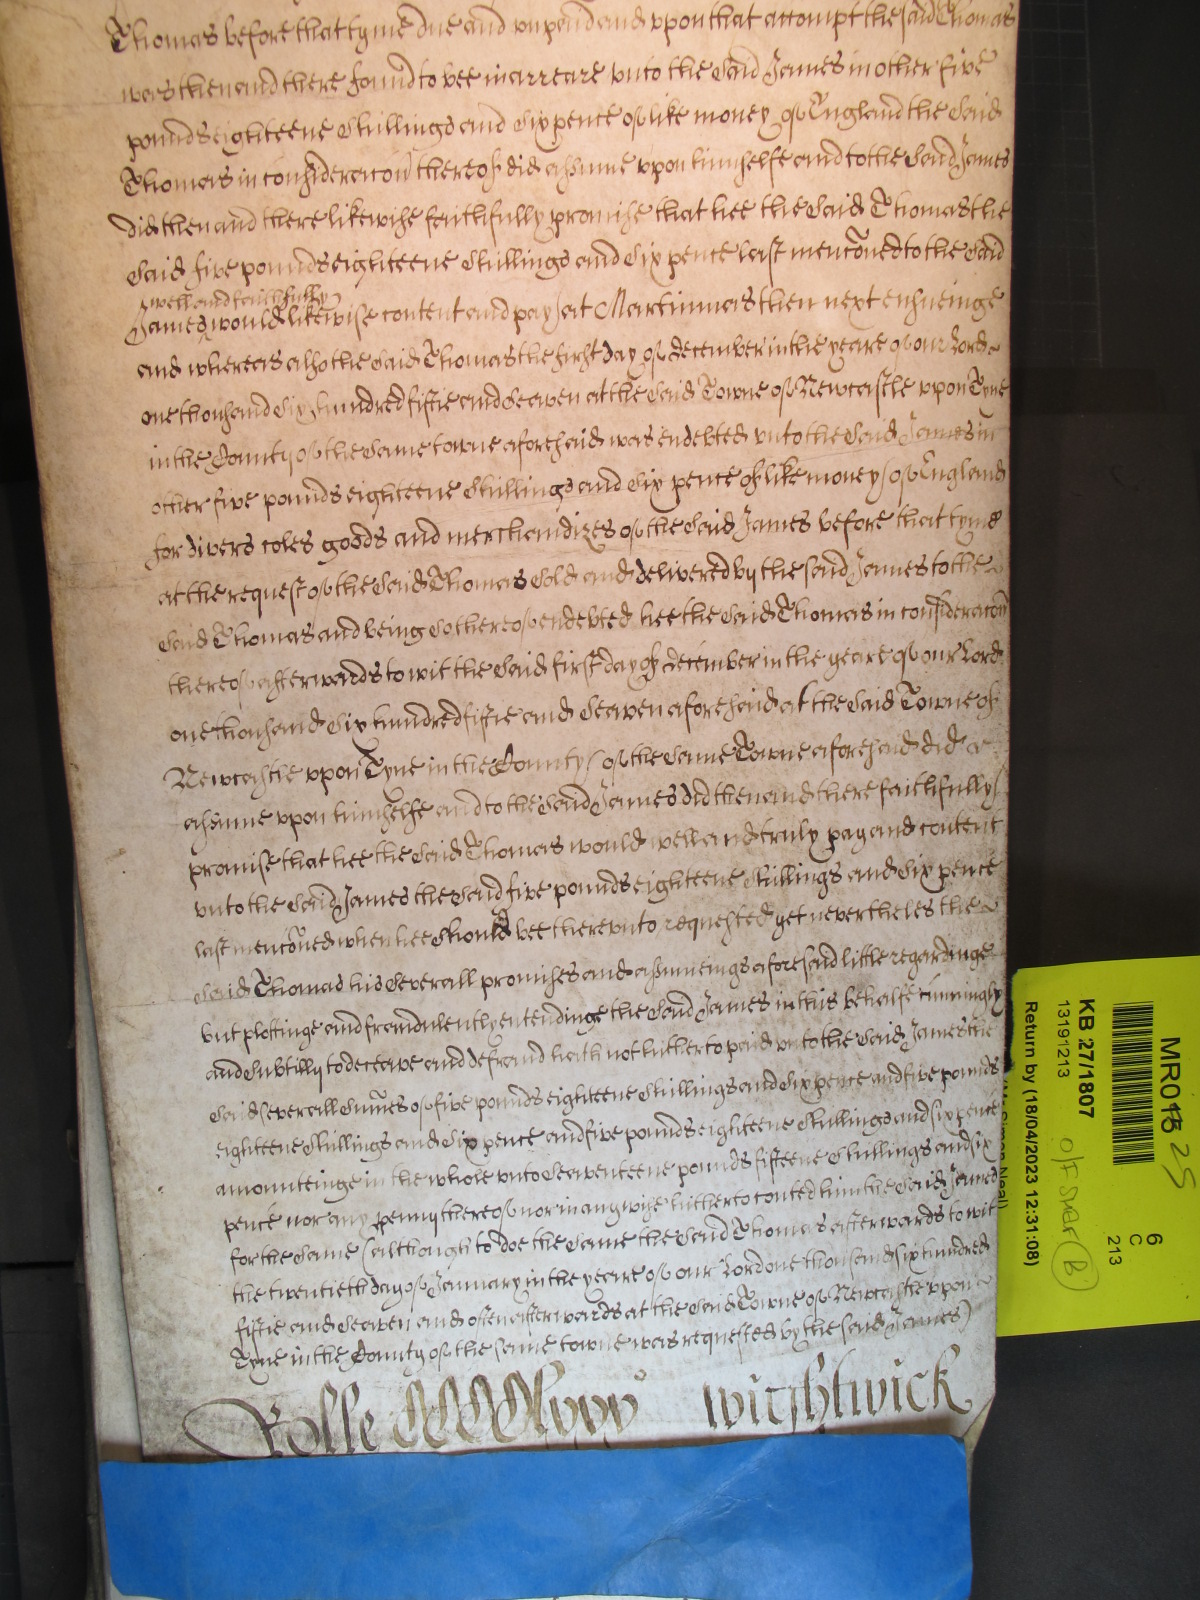 Thomas before that tyme due and unpaid and vpon that accompt the said Thomas
was then and there found to bee in arreare vnto the said James in other five
pounds eighteene shillings and six pence of like money of England the said
Thomas in consideracon thereof did assume vpon himselfe and to the said James
did then and there likewise faithfully promise that hee the said Thomas the
said five pounds eighteene shillings and six pence last menconed to the said
well and faithfully
James would likewise content and pay at Martinmas then next ensueinge
and whereas alsoe the said Thomas the first day of december in the yeare of our Lord
one thousand six hundred fiftie and seaven at the said Towne of Newcastle vpon Tyne
in the County of the same towne aforesaid was endebted vnto the said James in
other five pounds eighteene shillings and six pence of like money of England
for divers coles goods and merchandizes of the said James before that tyme
at the request of the said Thomas sold and delivered by the said James to the
said Thomas and being so thereof endebted hee the said Thomas in consideracon
thereof afterwards to wit the said first day of december in the yeare of our Lord
one thousand six hundred fiftie and seaven aforesaid at the said Towne of
Newcastle vpon Tyne in the County of the same Towne aforesaid did
assume vpon himselfe and to the said James did then and there faithfully
promise that hee the said Thomas would well and truly pay and content
vnto the said James the said five pounds eighteene shillings and six pence
last menconed when hee should bee therevnto requested yet nevertheles the
said Thomas his severall promises and assumeings aforesaid little regardinge
but plottinge and fraudulently entendinge the said James in this behalfe cunningly
and subtilly to deceave and defraud hath not hitherto paid vnto the said James the
said severall summes of five pounds eighteene shillings and six pence and five pounds
eighteene shillings and six pence and five pounds eighteene shillings and six pence
amounteinge in the whole vnto seaventeene pounds fifteene shillings and six
pence nor any penny thereof nor in any wise hitherto conted him the said James
for the same (although to doe the same the said Thomas afterwards to wit
the twentieth day of January in the yeare of our Lord one thousand six hundred
fiftie and seaven and often afterwards at the said Towne of Newcastle vpon
Tyne in the County of the same towne was requested by the said James)
Rolle CCCClxxv wightwick
MR018 25
6
C
213
KB 27/1807
13191213
Return by (18/04/2023 12:31:08)
B